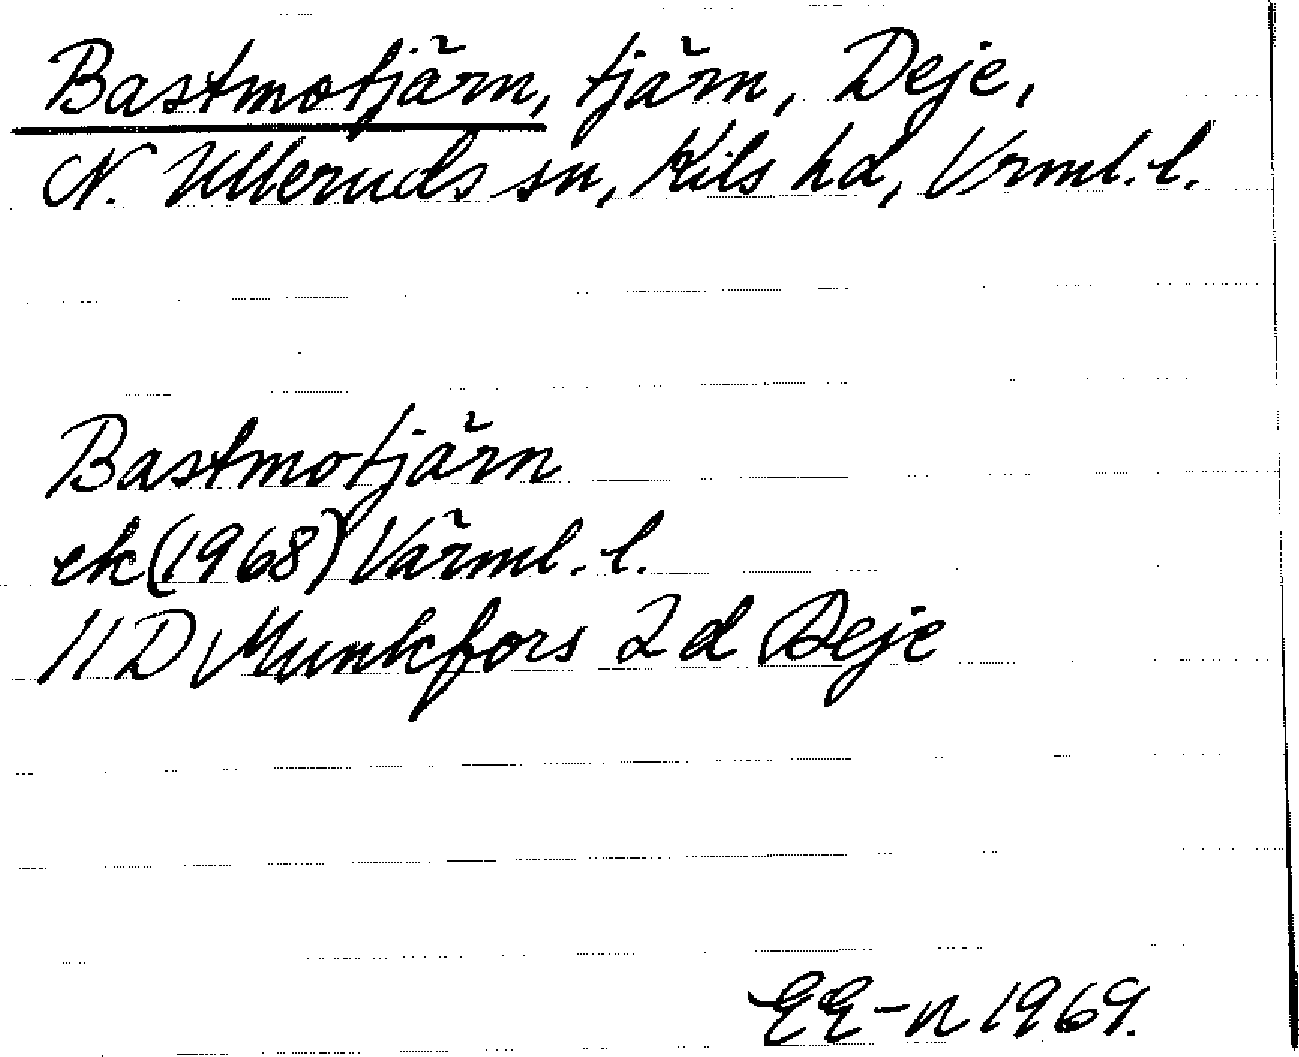 Bastmotjärn, tjärn, Deje,
N. Ulleruds sn, Kils hd, Vrml. l.
Bastmotjärn
ek (1968) Värml. l.
11 D Munkfors 2 d Deje
EE-n 1969.